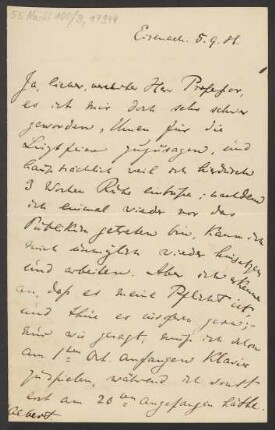 Eisenach. 5.9.86.
Ja, lieber, verehrter Herr Professor,
es ist mir doch sehr schwer
geworden, Ihnen für die
zuzusagen, und
hauptsächlich weil ich hierdurch
3 Wochen Ruhe einbüsse; nachdem
ich einmal wieder vor das
Publikum getreten bin, kann ich
mich unmöglich wieder hinsetzen
und arbeiten. Aber ich erkenne
an, daß es meine Pflicht ist
und thue es insofern gern;
nur wie gesagt, muß ich schon
am 1ten Oct. anfangen Klavier
zu spielen, während ich sonst
erst am 20ten angefangen hätte.
d'Albert